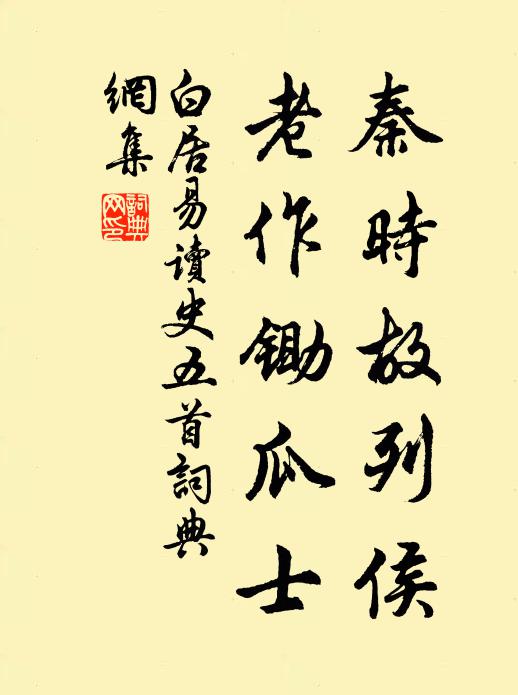 秦時故列侯
老作鋤瓜士
白居易讀史五首詞典
網集
詞典
网印